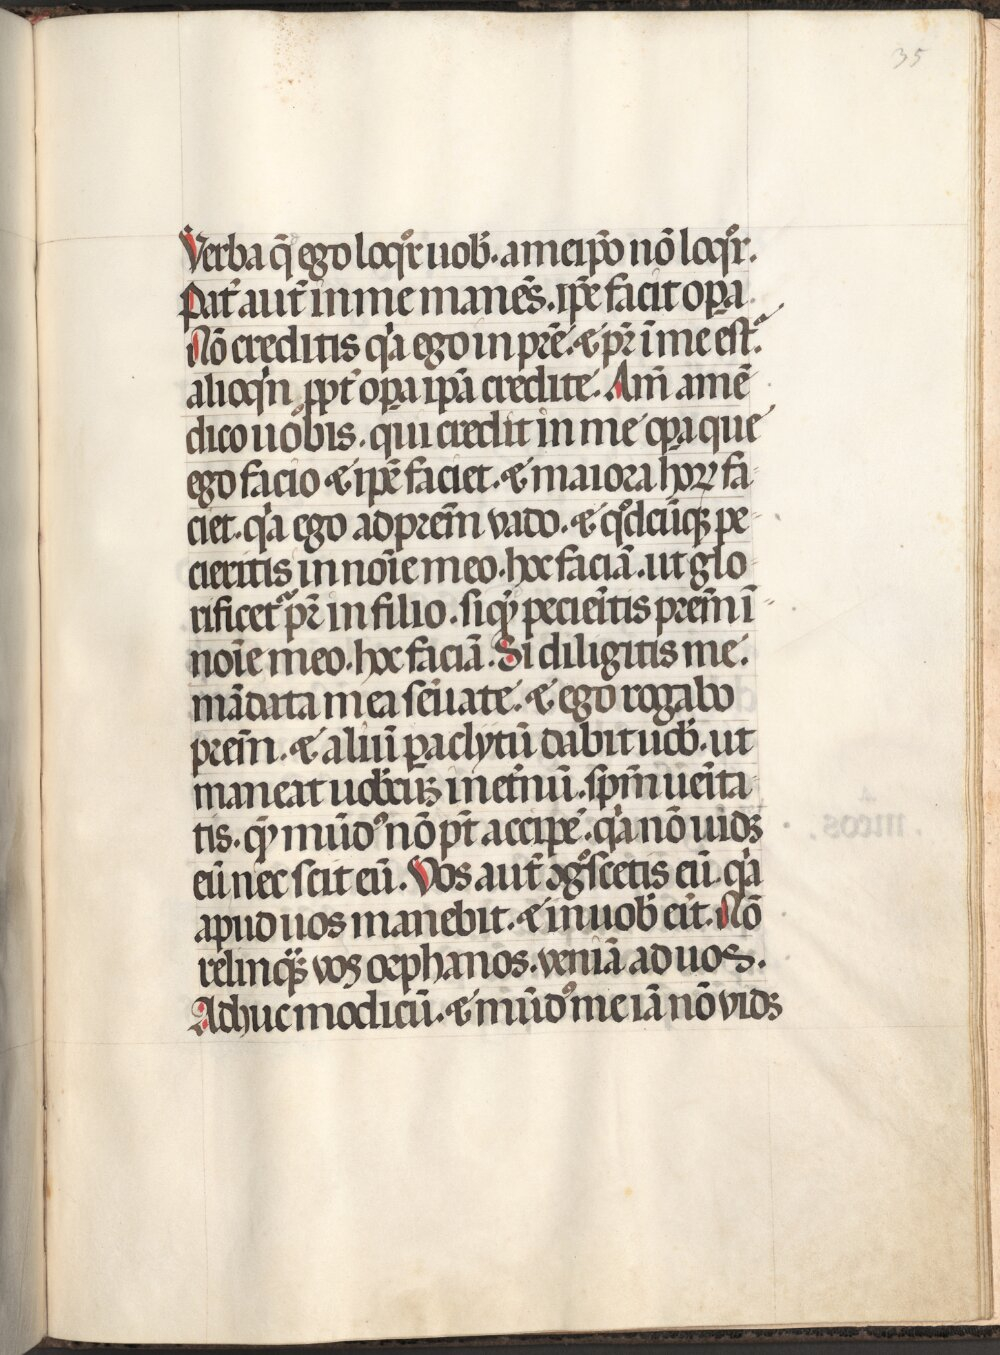 35
Verba q̄ ego loqͦr uob̄. a me ip̄o nō loqͦr.
Pat̄ aut̄ in me manēs. ip̄e facit oꝑa
Nō creditis qͥa ego in pr̄e. ⁊ pr̄ ī me est.ͣ
alioqͥn ꝓpt̄ oꝑa ip̄a credite. Am̄ amē
dico uobis. qui credit in me oꝑa que
ego facio ⁊ ip̄e faciet. ⁊ maiora hoꝝ fa
ciet. qͥa ego ad prem̄ vado. ⁊ qͦdcūqꝫ pe
cieritis in noīe meo. hoc faciā. ut glo
rificetͬ pr̄ in filio. si qͥd pecieritis prem̄ ī
noīe meo. hoc faciā. Si diligitis me.
mādata mea seruate. ⁊ ego rogabo
prem̄. ⁊ aliū ꝑaclytū dabit uob̄. ut
maneat uobcuꝫ in et̄nū. spm̄ uerita
tis. quē mūdꝰ nō pt̄ acciꝑe. qͥa nō uidꝫ
eū nec scit eū. Vos aut̄ ꝯgͦscetis eū. qͥa
apud uos manebit. ⁊ in uob̄ erit. Nō
relinqͣꝫ vos orphanos. veniā ad uos.
Adhuc modicū. ⁊ mūdꝰ me iā nō vidꝫ